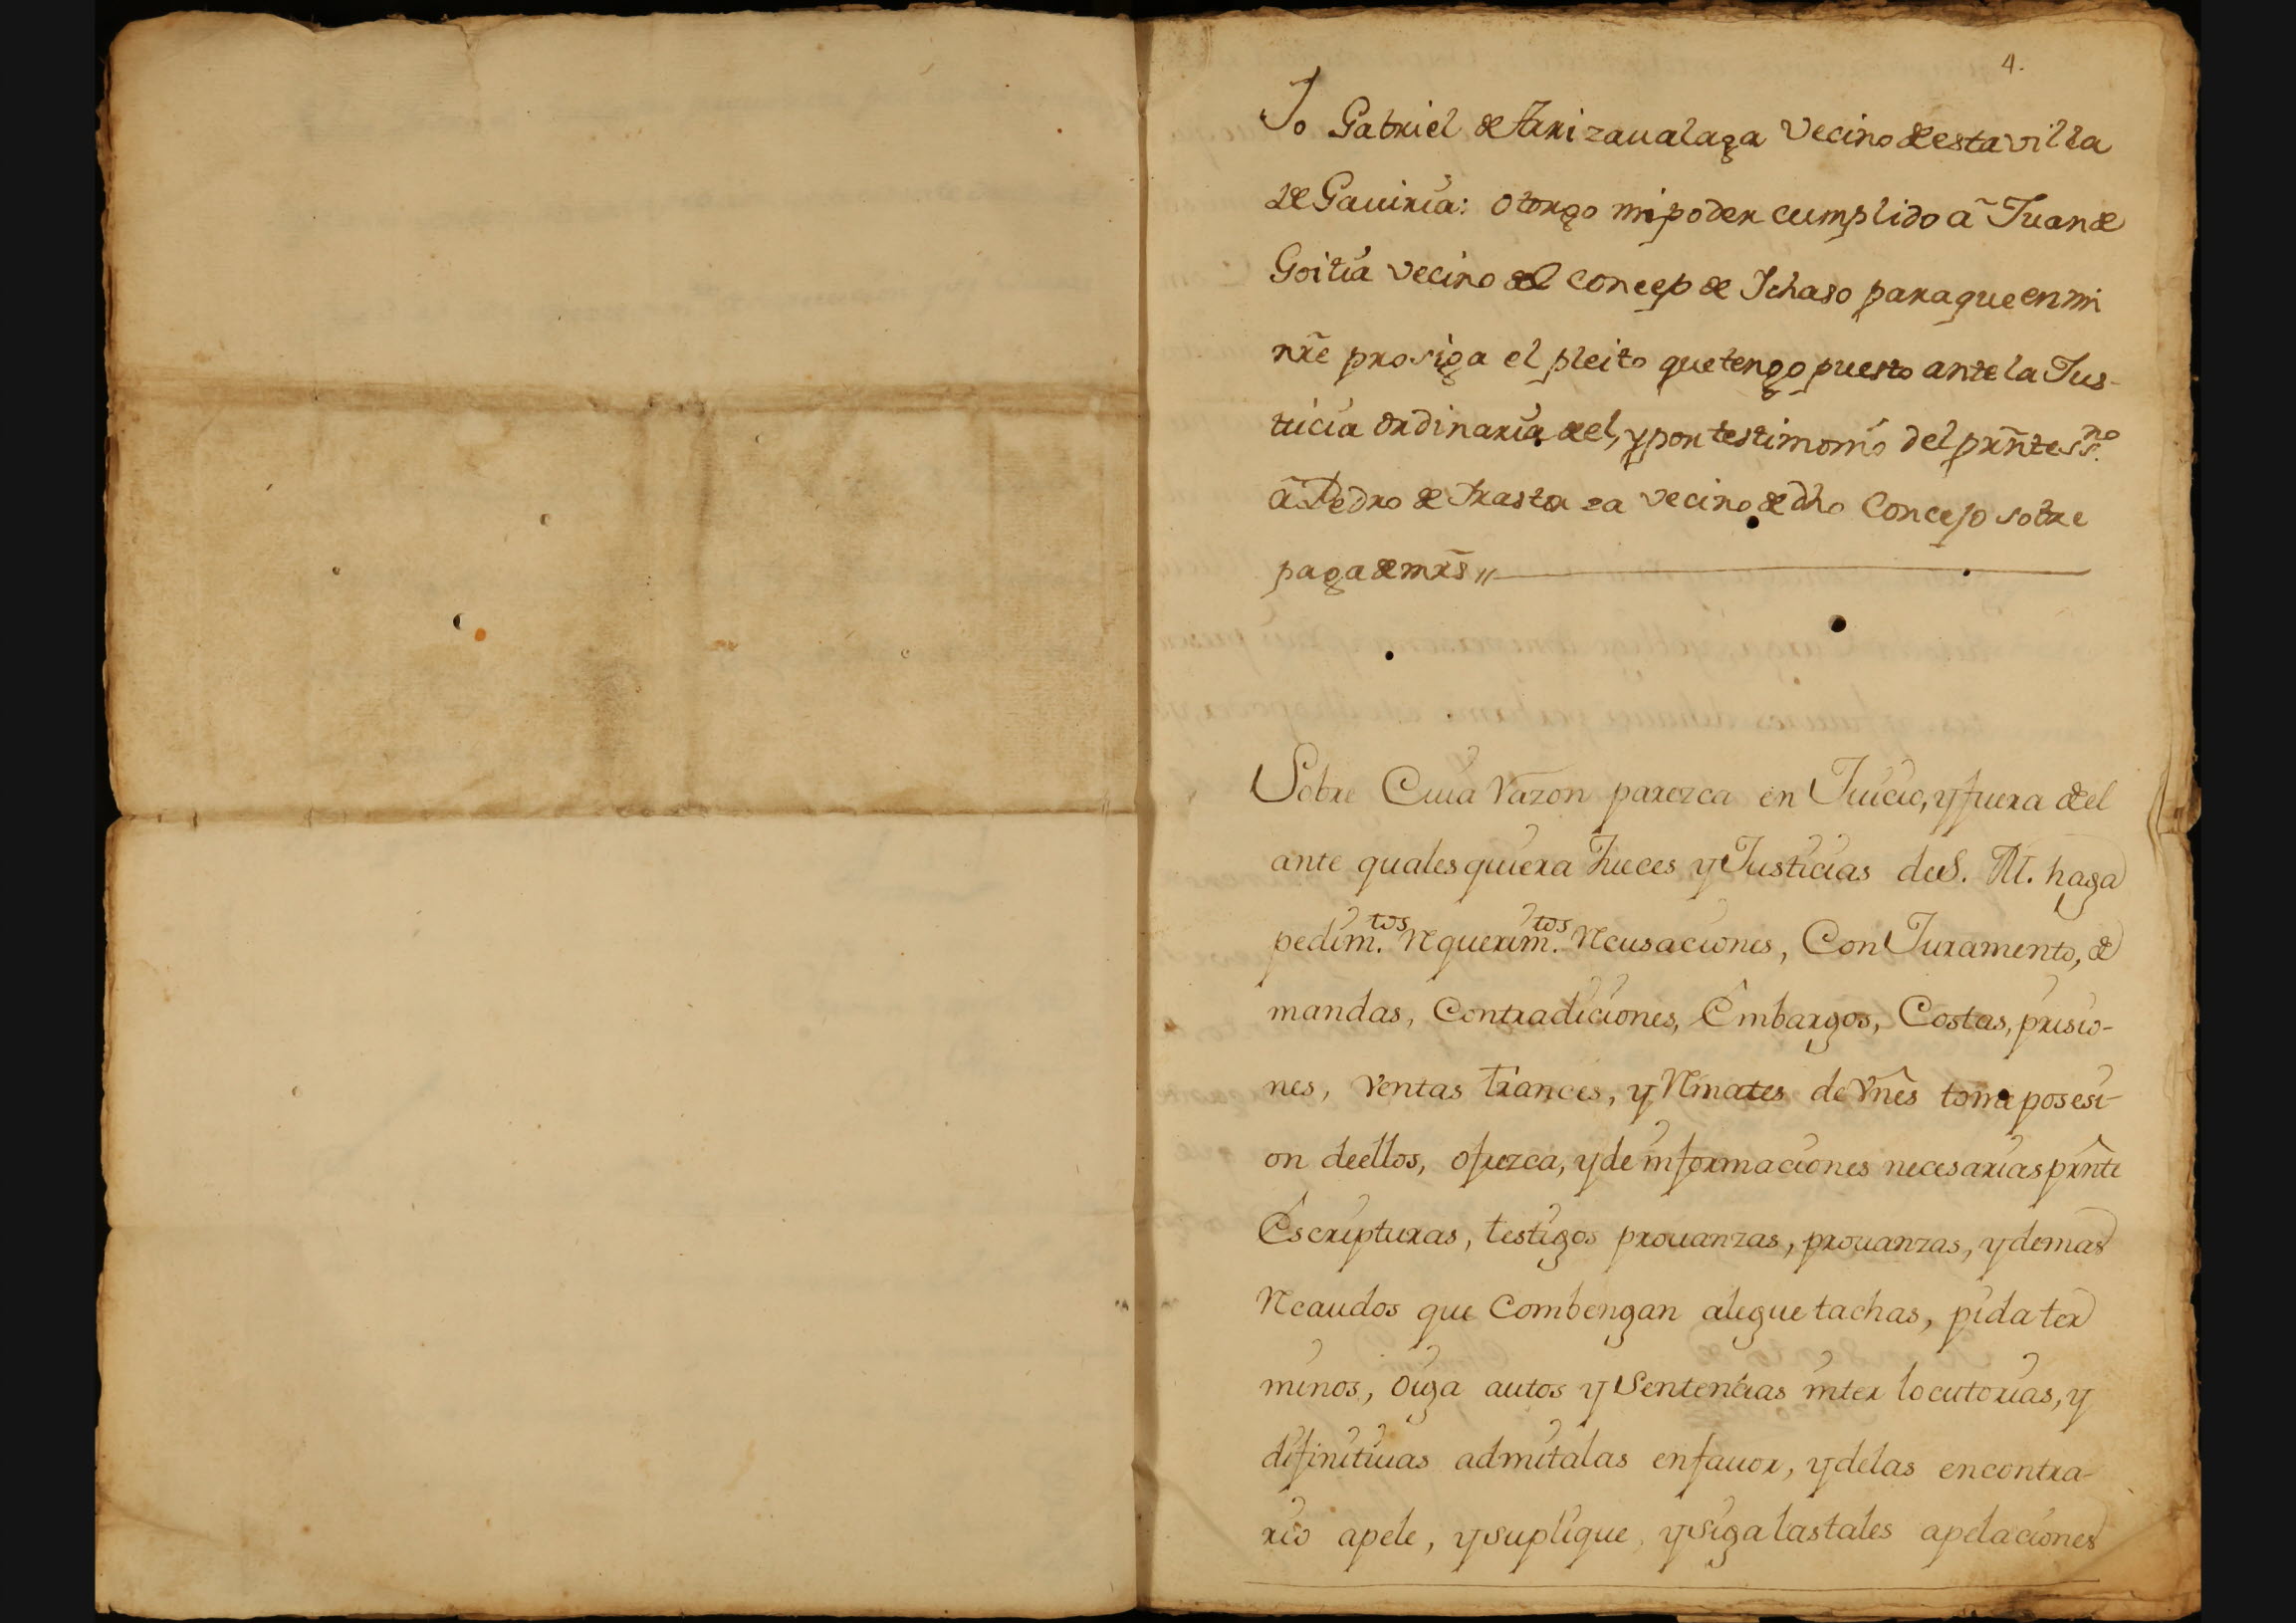 4.
Yo Gabriel de Arrizaualaga Vecino de esta villa
de Gauiria: otorgo mi poder cumplido â Juan de
Goitia vecino del concep de Ichaso para que en mi
nr̃e prosiga el pleito que tengo puesto ante la Jus-
ticia ordinaria del, y por testimonio del prñte ss.no
â Pedro de Irastorza vecino de dho Concejo sobre
paga de mrs̃ //
Sobre Cuia razon parezca en Juicio, y fuera del
ante quales quiera Jueces y Justicias de S. M. haga
pedim.tos Requerim.tos Recusaciones, Con Juramento, de
mandas, Contradiciones, Embargos, Costas, prisio-
nes, ventas trances, y Rmates de vnẽs tome posesi-
on deellos, ofrezca, y de informaciones necesarias prñte
Escripturas, testigos prouanzas, prouanzas, y demas
Recaudos que Combengan alegue tachas, pida ter
minos, oiga autos y Sentencias inter locutorias, y
difinitiuas admitalas en fauor, y delas en contra-
rio apele, y suplique, y siga las tales apelaciones